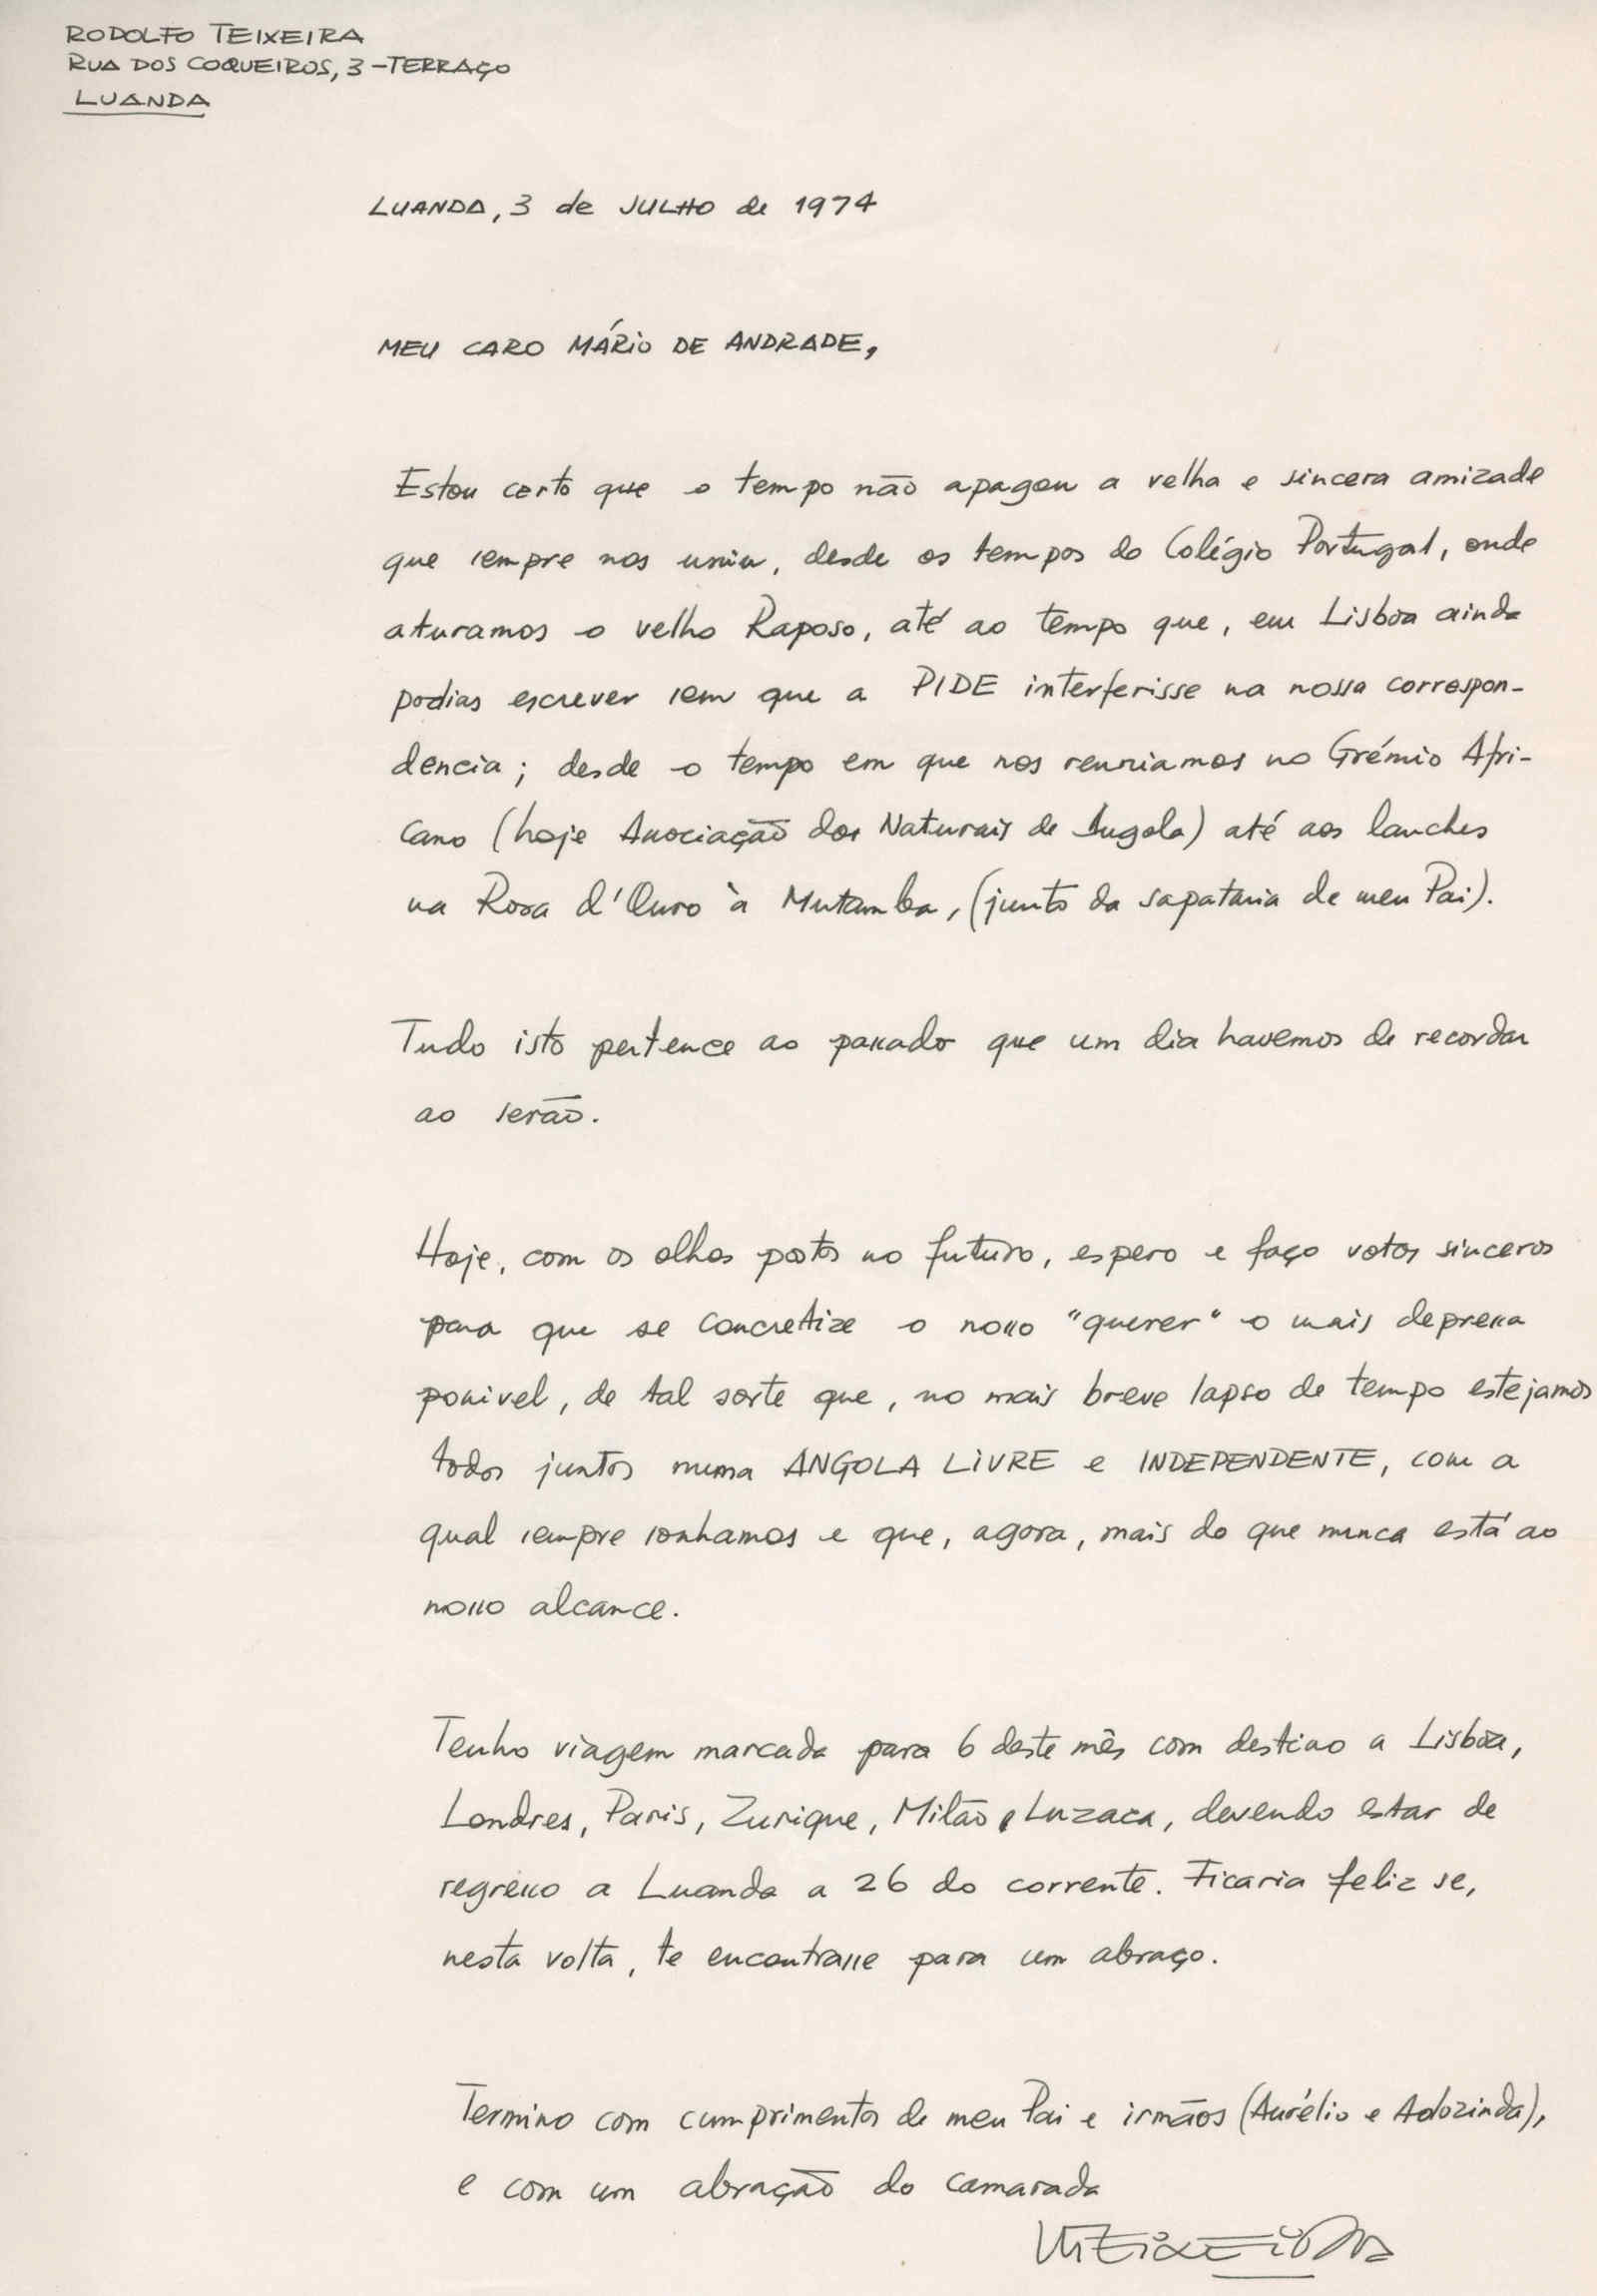 RODOLFO TEIXEIRA
RUA DOS COQUEIROS, 3 - TERRAÇO
LUANDA
LUANDA, 3 de JULHO de 1974
MEU CARO MÁRIO DE ANDRADE,
Estou certo que o tempo não apagou a velha e sincera amizade
que sempre nos uniu, desde os tempos do Colégio Portugal, onde
aturamos o velho Raposo, até ao tempo que, em Lisboa ainda
podias escrever sem que a PIDE interferisse na nossa correspon-
dencia; desde o tempo em que nos reuniamos no Grémio Afri-
cano (hoje Associação dos Naturais de Angola) até aos lanches
na Rosa d'Ouro à Mutamba, (junto da sapataria de meu Pai).
Tudo isto pertence ao passado que um dia havemos de recordar
ao serão.
Hoje, com os olhos postos no futuro, espero e faço votos sinceros
para que se concretize o nosso "querer" o mais depressa
possivel, de tal sorte que, no mais breve lapso de tempo estejamos
todos juntos numa ANGOLA LIVRE e INDEPENDENTE, com a
qual sempre sonhamos e que, agora, mais do que nunca está ao
nosso alcance.
Tenho viagem marcada para 6 deste mês com destino a Lisboa,
Londres, Paris, Zurique, Milão e Luzaca, devendo estar de
regresso a Luanda a 26 do corrente. Ficaria feliz se,
nesta volta, te encontrasse para um abraço.
Termino com cumprimentos de meu Pai e irmãos (Aurélio e Adozinda),
e com um abração do camarada